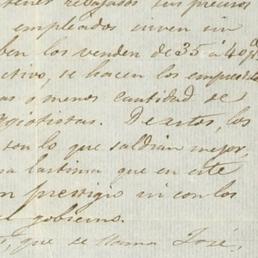 rebajados sus precios
empleados viven en
los venden de 35 á 40 p%
ctivo, se hacen los
as o menos cantidad de
agiotistas. De estos, los
son lo que saldrian mejor,
lastima que en este
prestigio ni con los
el gobierno.
que se llama José,